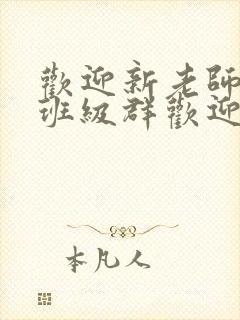 歡迎新老師
班級群歡迎
本凡人